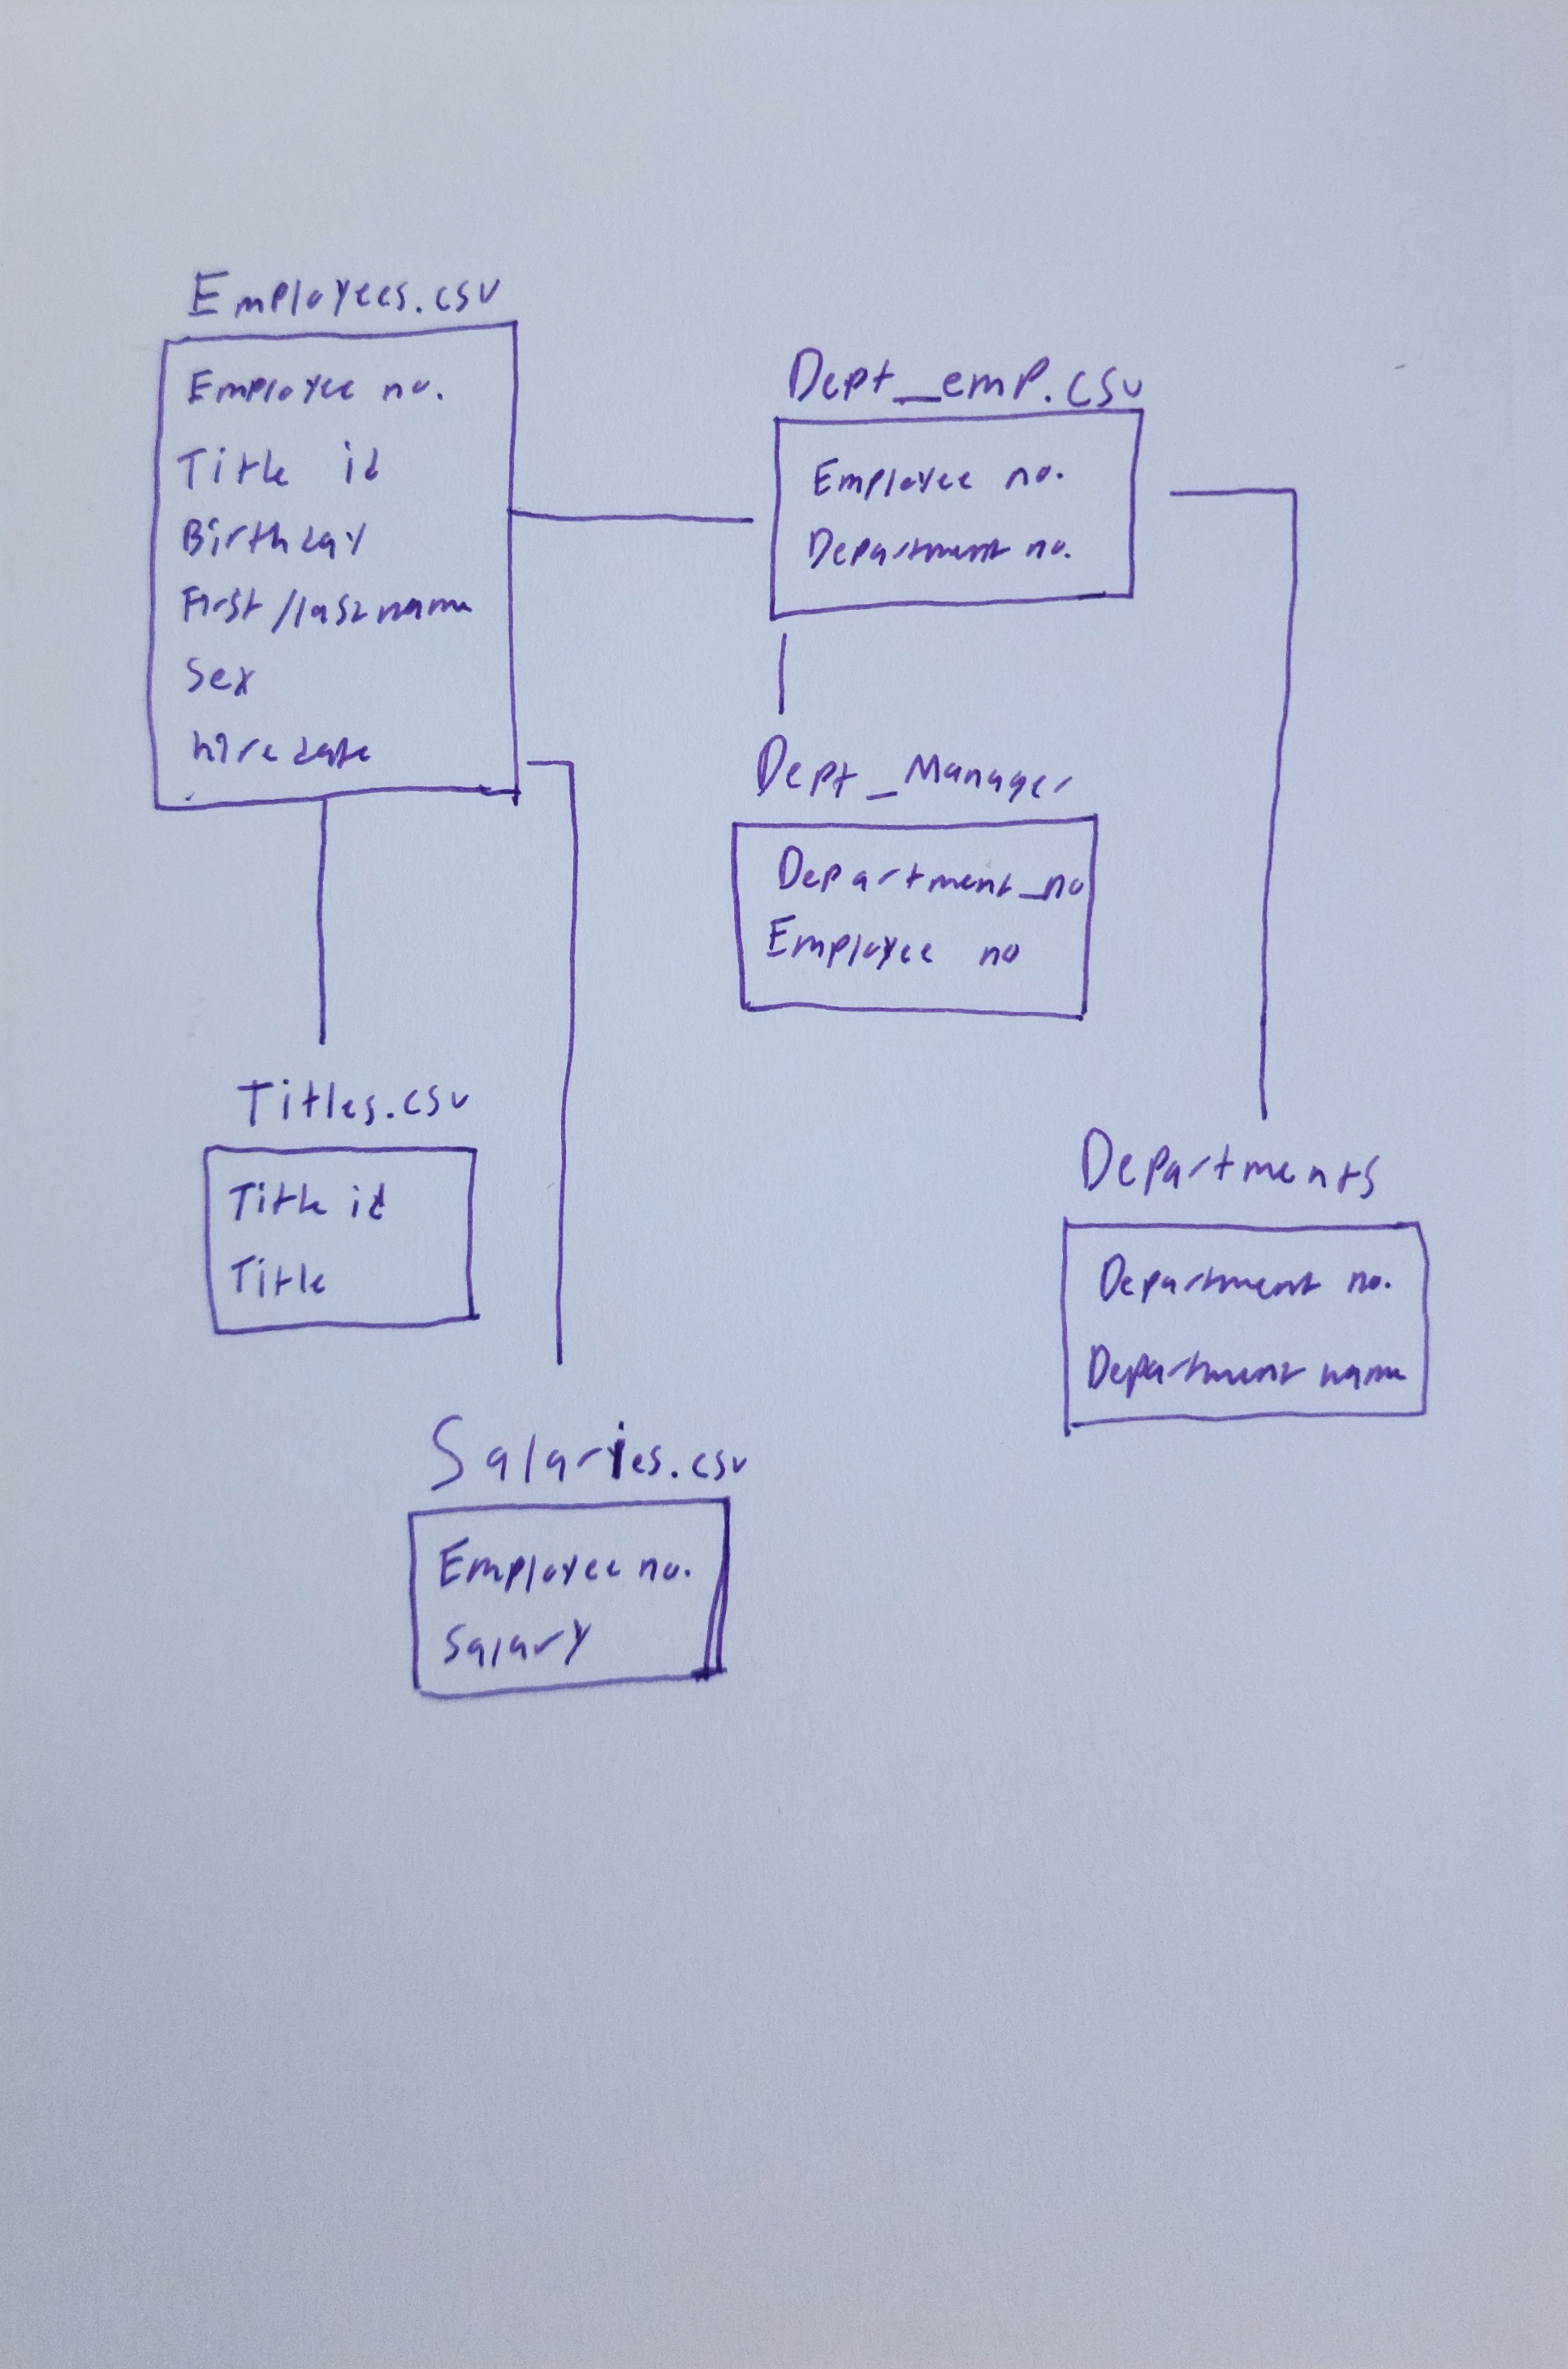 Employees.csv
Employee no.
Title id
Birthday
First/last name
Sex
hire date
Dept_emp.csv
Employee no.
Department no.
Dept_Manager
Department_no
Employee no
Titles.csv
Title id
Title
Departments
Department no.
Department name
Salaries.csv
Employee no.
Salary